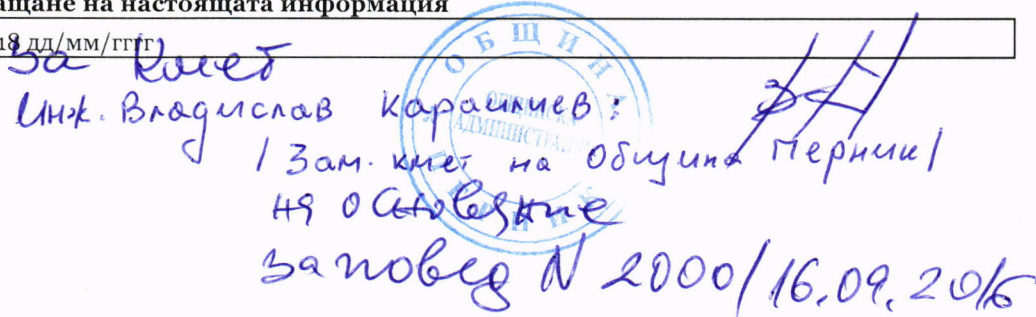 ащане на настоящата информация
18 дд/мм/гггг
За Кмет
Инж. Владислав Караилиев:
/ Зам. кмет на Община Перник /
на основание
заповед N 2000/16.09.2016
ОБЩИНА
ОБЩИНСКА
АДМИНИСТРАЦИЯ